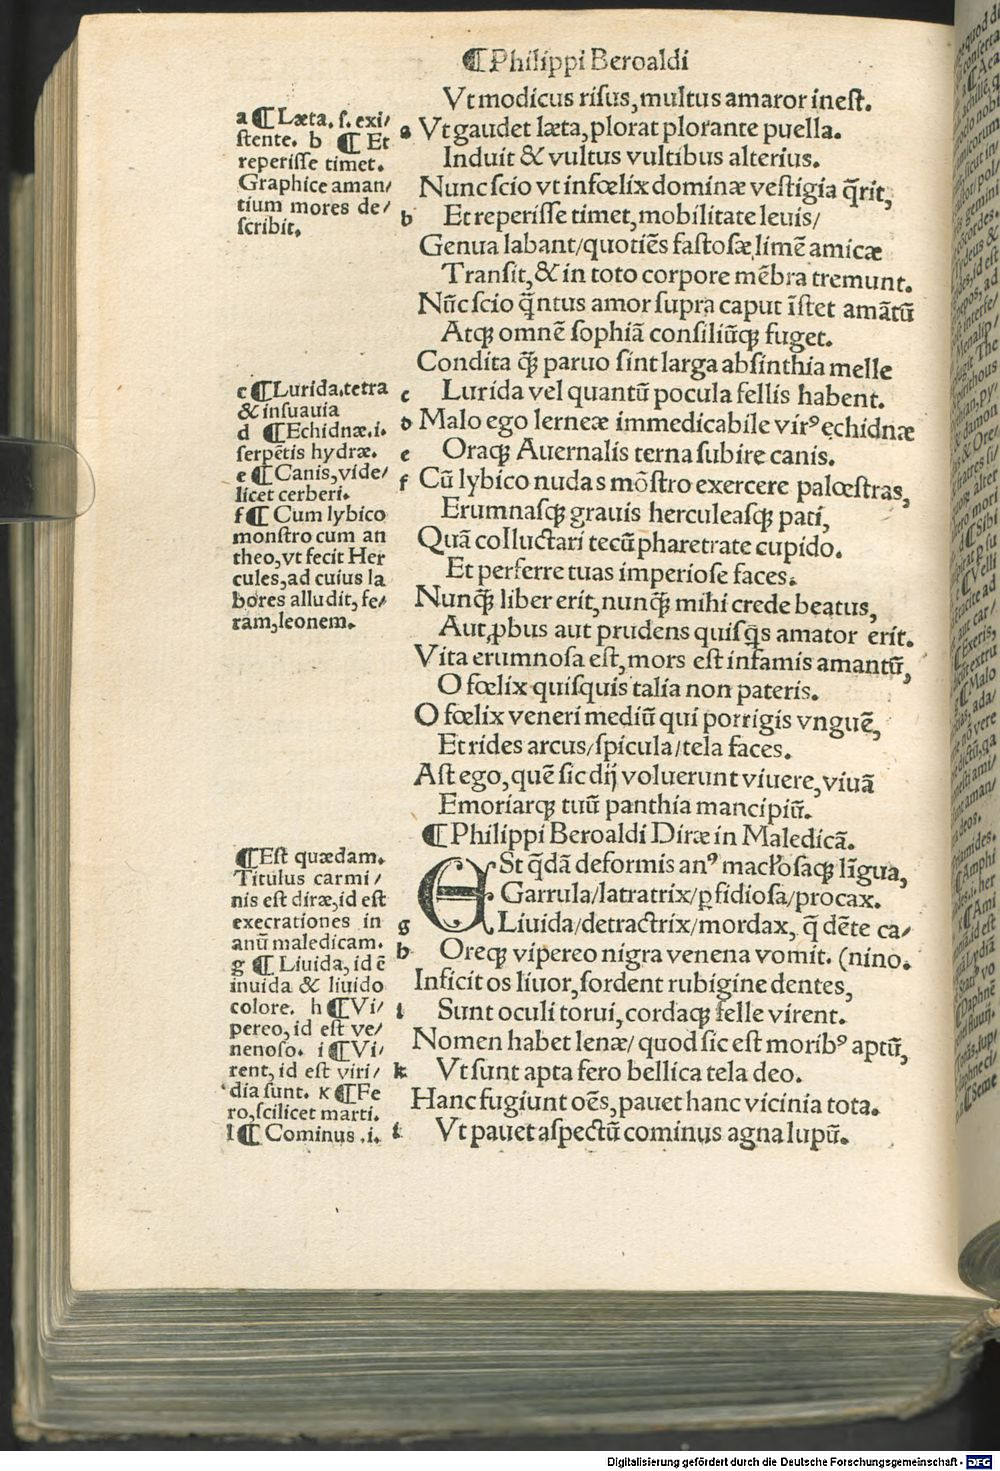 ¶Philippi Beroaldi
Vt modicus risus, multus amaror inest.
Vt gaudet læta, plorat plorante puella.
Induit & vultus vultibus alterius.
Nunc scio vt infœlix dominæ vestigia q̄rit,
Et reperisse timet, mobilitate leuis/
Genua labant/quotiēs fastosæ limē amicæ
Transit, & in toto corpore mēbra tremunt.
Nūc scio q̄ntus amor supra caput īstet amātū
Atqꝫ omnē sophiā consiliūqꝫ fuget.
Condita qꝫ̄ paruo sint larga absinthia melle
Lurida vel quantū pocula fellis habent.
Malo ego lerneæ immedicabile virꝰ echidnæ
Oraqꝫ Auernalis terna subire canis.
Cū lybico nudas mōstro exercere palœstras,
Erumnasqꝫ grauis herculeasqꝫ pati,
Quā colluctari tecū pharetrate cupido.
Et perferre tuas imperiose faces.
Nunqꝫ̄ liber erit, nunqꝫ̄ mihi crede beatus,
Aut ꝓbus aut prudens quisq̄s amator erit.
Vita erumnosa est, mors est infamis amantū,
O fœlix quisquis talia non pateris.
O fœlix veneri mediū qui porrigis vnguē,
Et rides arcus/spicula/tela faces.
Ast ego, quē sic dij voluerunt viuere, viuā
Emoriarqꝫ tuū panthia mancipiū.
¶Philippi Beroaldi Diræ in Maledicā.
ESt q̄dā deformis anꝰ maculosaqꝫ līgua,
Garrula/latratrix/ꝑfidiosa/procax.
Liuida/detractrix/mordax, q̄ dēte ca/
Oreqꝫ vipereo nigra venena vomit. (nino.
Inficit os liuor, sordent rubigine dentes,
Sunt oculi torui, cordaqꝫ felle virent.
Nomen habet lenæ/ quod sic est moribꝰ aptū,
Vt sunt apta fero bellica tela deo.
Hanc fugiunt oēs, pauet hanc vicinia tota.
Vt pauet aspectū cominus agna lupū.
a ¶Læta. s. exi/
stente. b ¶ Et
reperisse timet.
Graphice aman/
tium mores de/
scribit.
c ¶Lurida.tetra
& insuauia
d ¶Echidnæ.i.
serpētis hydræ.
e ¶Canis, vide/
licet cerberi.
f ¶ Cum lybico
monstro cum an
theo, vt fecit Her
cules, ad cuius la
bores alludit, fe/
ram, leonem.
¶Est quædam.
Titulus carmi/
nis est diræ, id est
execrationes in
anū maledicam.
g ¶ Liuida, id ē
inuida & liuido
colore. h ¶Vi/
pereo, id est ve/
nenoso. i ¶Vi/
rent, id est viri/
dia sunt. K ¶Fe
ro, scilicet marti.
l ¶ Cominus .i.
a
b
c
d
e
f
g
h
i
k
l
Digitalisierung gefördert durch die Deutsche Forschungsgemeinschaft - DFG